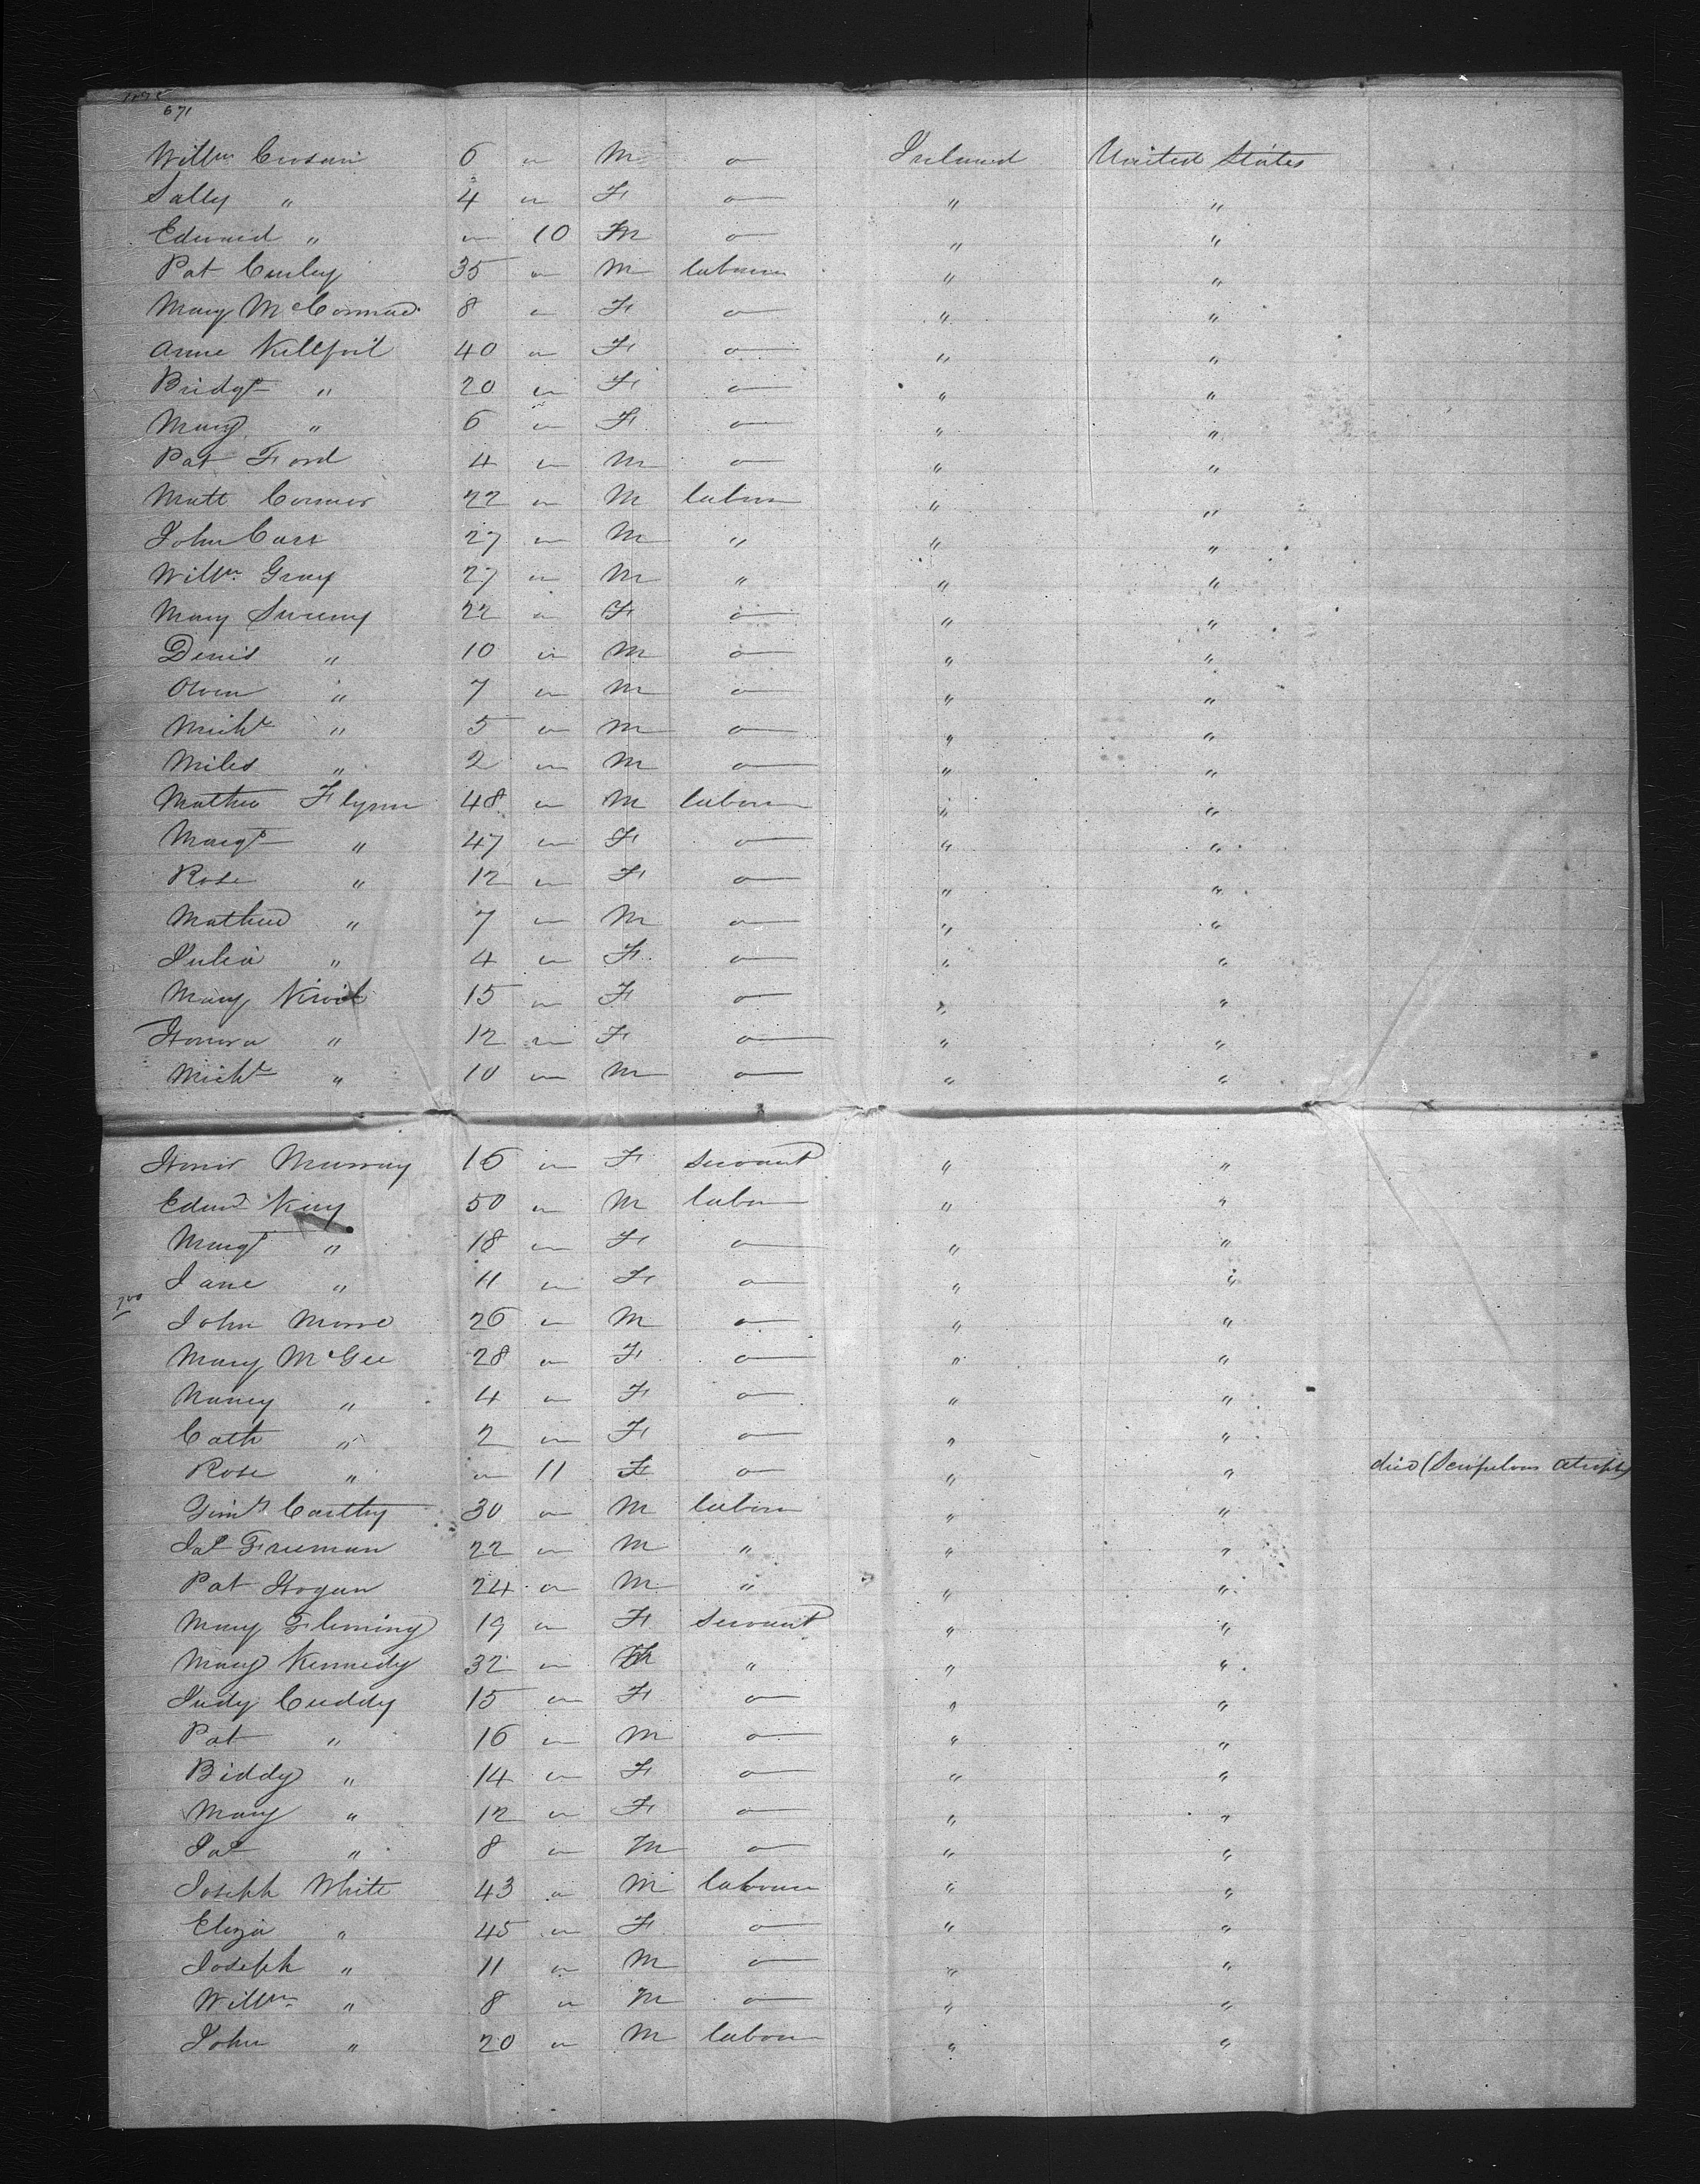 671
Willm 6 M Ireland United States
Sally " 4 F " "
Edward " 10 M " "
Pat Curley 35 M labourer " "
Mary 8 F " "
Anne Killfoil 40 F " "
Bridgt " 20 F " "
Mary " 6 F " "
Pat Ford 4 M " "
Matt Connor 22 M labour " "
John Carr 27 M " " "
Willm Gray 27 M " " "
Mary Sweeny 22 F " "
Denis " 10 M " "
Owen " 7 M " "
Michl " 5 M " "
Miles " 2 M " "
Mathew Flynn 48 M labour " "
Margt " 47 F " "
Rose " 12 F " "
Mathew " 7 M " "
Julia " 4 F " "
Mary 15 F " "
Honora " 12 F " "
Michl " 10 M " "
Honor Murray 16 F servant " "
Edwd King 50 M labour " "
Margt " 18 F " "
Jane " 11 F " "
700
John 26 M " "
Mary McGee 28 F " "
Nancy " 4 F " "
Cath " 2 F " "
Rose " 11 F " " died (Scrofulous atrophy
Timy Carthy 30 M labour " "
Jas Freeman 22 M " " "
Pat Hogan 24 M " " "
Mary Fleming 19 F servant " "
Mary Kennedy 32 " " "
Judy Cuddy 15 F " "
Pat " 16 M " "
Biddy " 14 F " "
Mary " 12 F " "
Jas " 8 M " "
Joseph White 43 M labourer " "
Eliza " 45 F " "
Joseph " 11 M " "
Willm " 8 M " "
John " 20 M labour " "